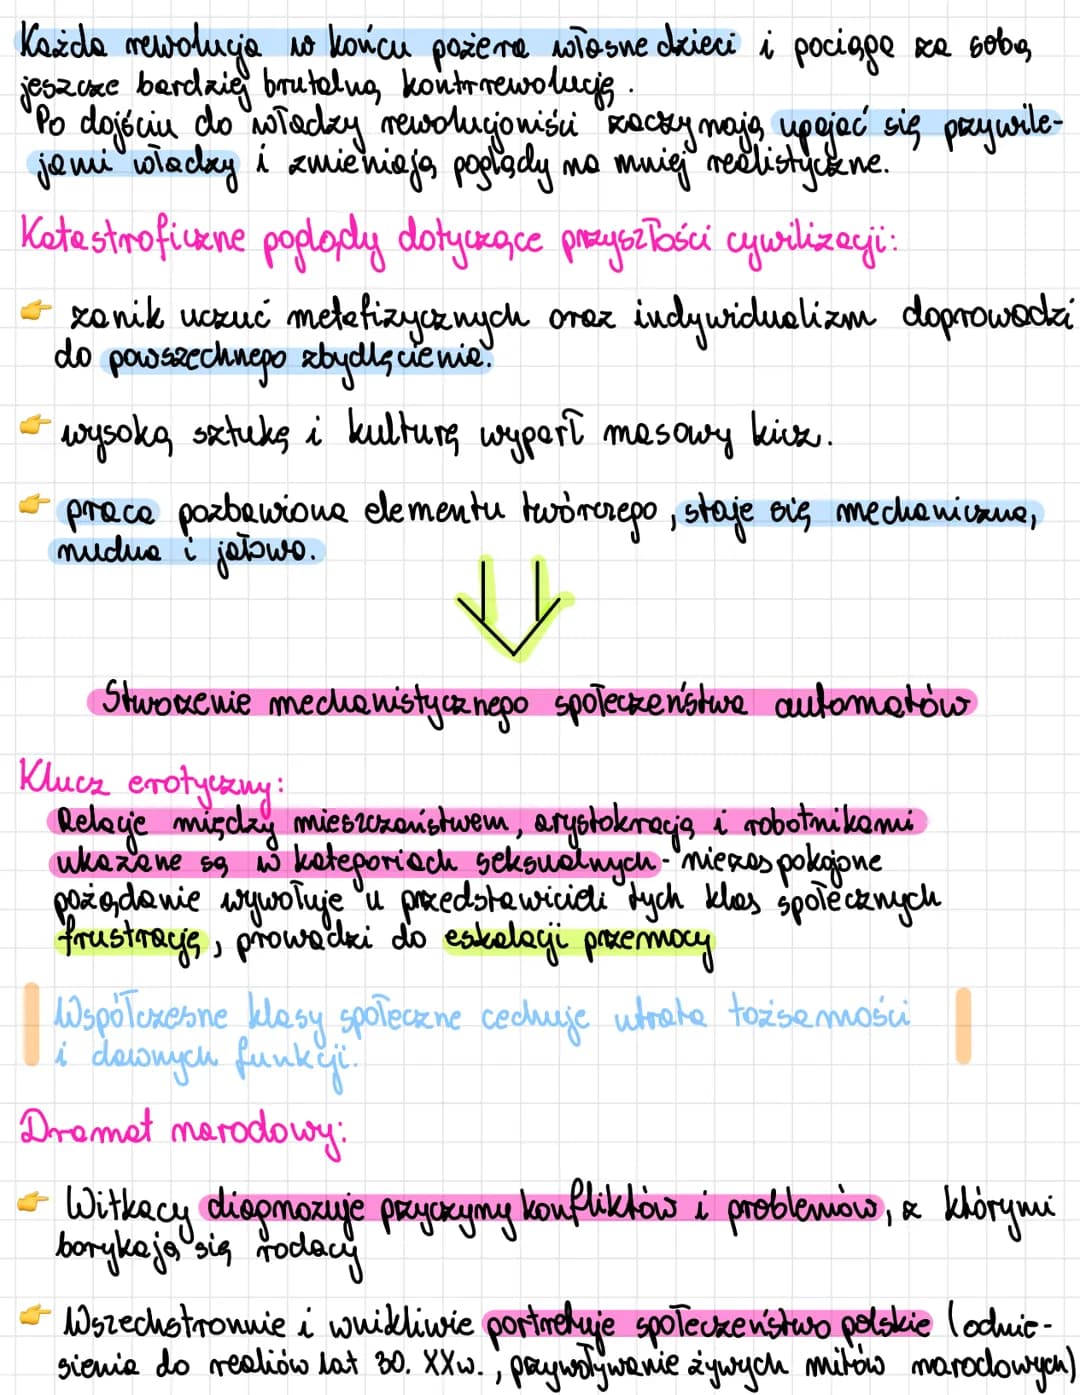 Każda rewolucja w końcu pożera własne dzieci i pociąga za sobą
jeszcze bardziej brutalną kontrrewolucję.
Po dojściu do władzy rewolucjoniści zaczynają upajać się przywile-
jami władzy i zmieniają poglądy na mniej realistyczne.
Katastroficzne poglądy dotyczące przyszłości cywilizacji:
👉 zanik uczuć metafizycznych oraz indywidualizm doprowadzi
do powszechnego zbydlęcenia.
👉 wysoką sztukę i kulturę wyparł masowy kicz.
👉 praca pozbawiona elementu twórczego, staje się mechaniczna,
nudna i jałowa.
Stworzenie mechanistycznego społeczeństwa automatów
Klucz erotyczny:
Relacje między mieszczaństwem, arystokracją i robotnikami
ukazane są w kategoriach seksualnych - niezaspokojone
pożądanie wywołuje u przedstawicieli tych klas społecznych
frustrację, prowadzi do eskalacji przemocy
Współczesne klasy społeczne cechuje utrata tożsamości
i dawnych funkcji.
Dramat narodowy:
👉 Witkacy diagnozuje przyczyny konfliktów i problemów, z którymi
borykają się rodacy
👉 Wszechstronnie i wnikliwie portretuje społeczeństwo polskie (odnie-
sienia do realiów lat 30. XXw., przywoływanie żywych mitów narodowych)